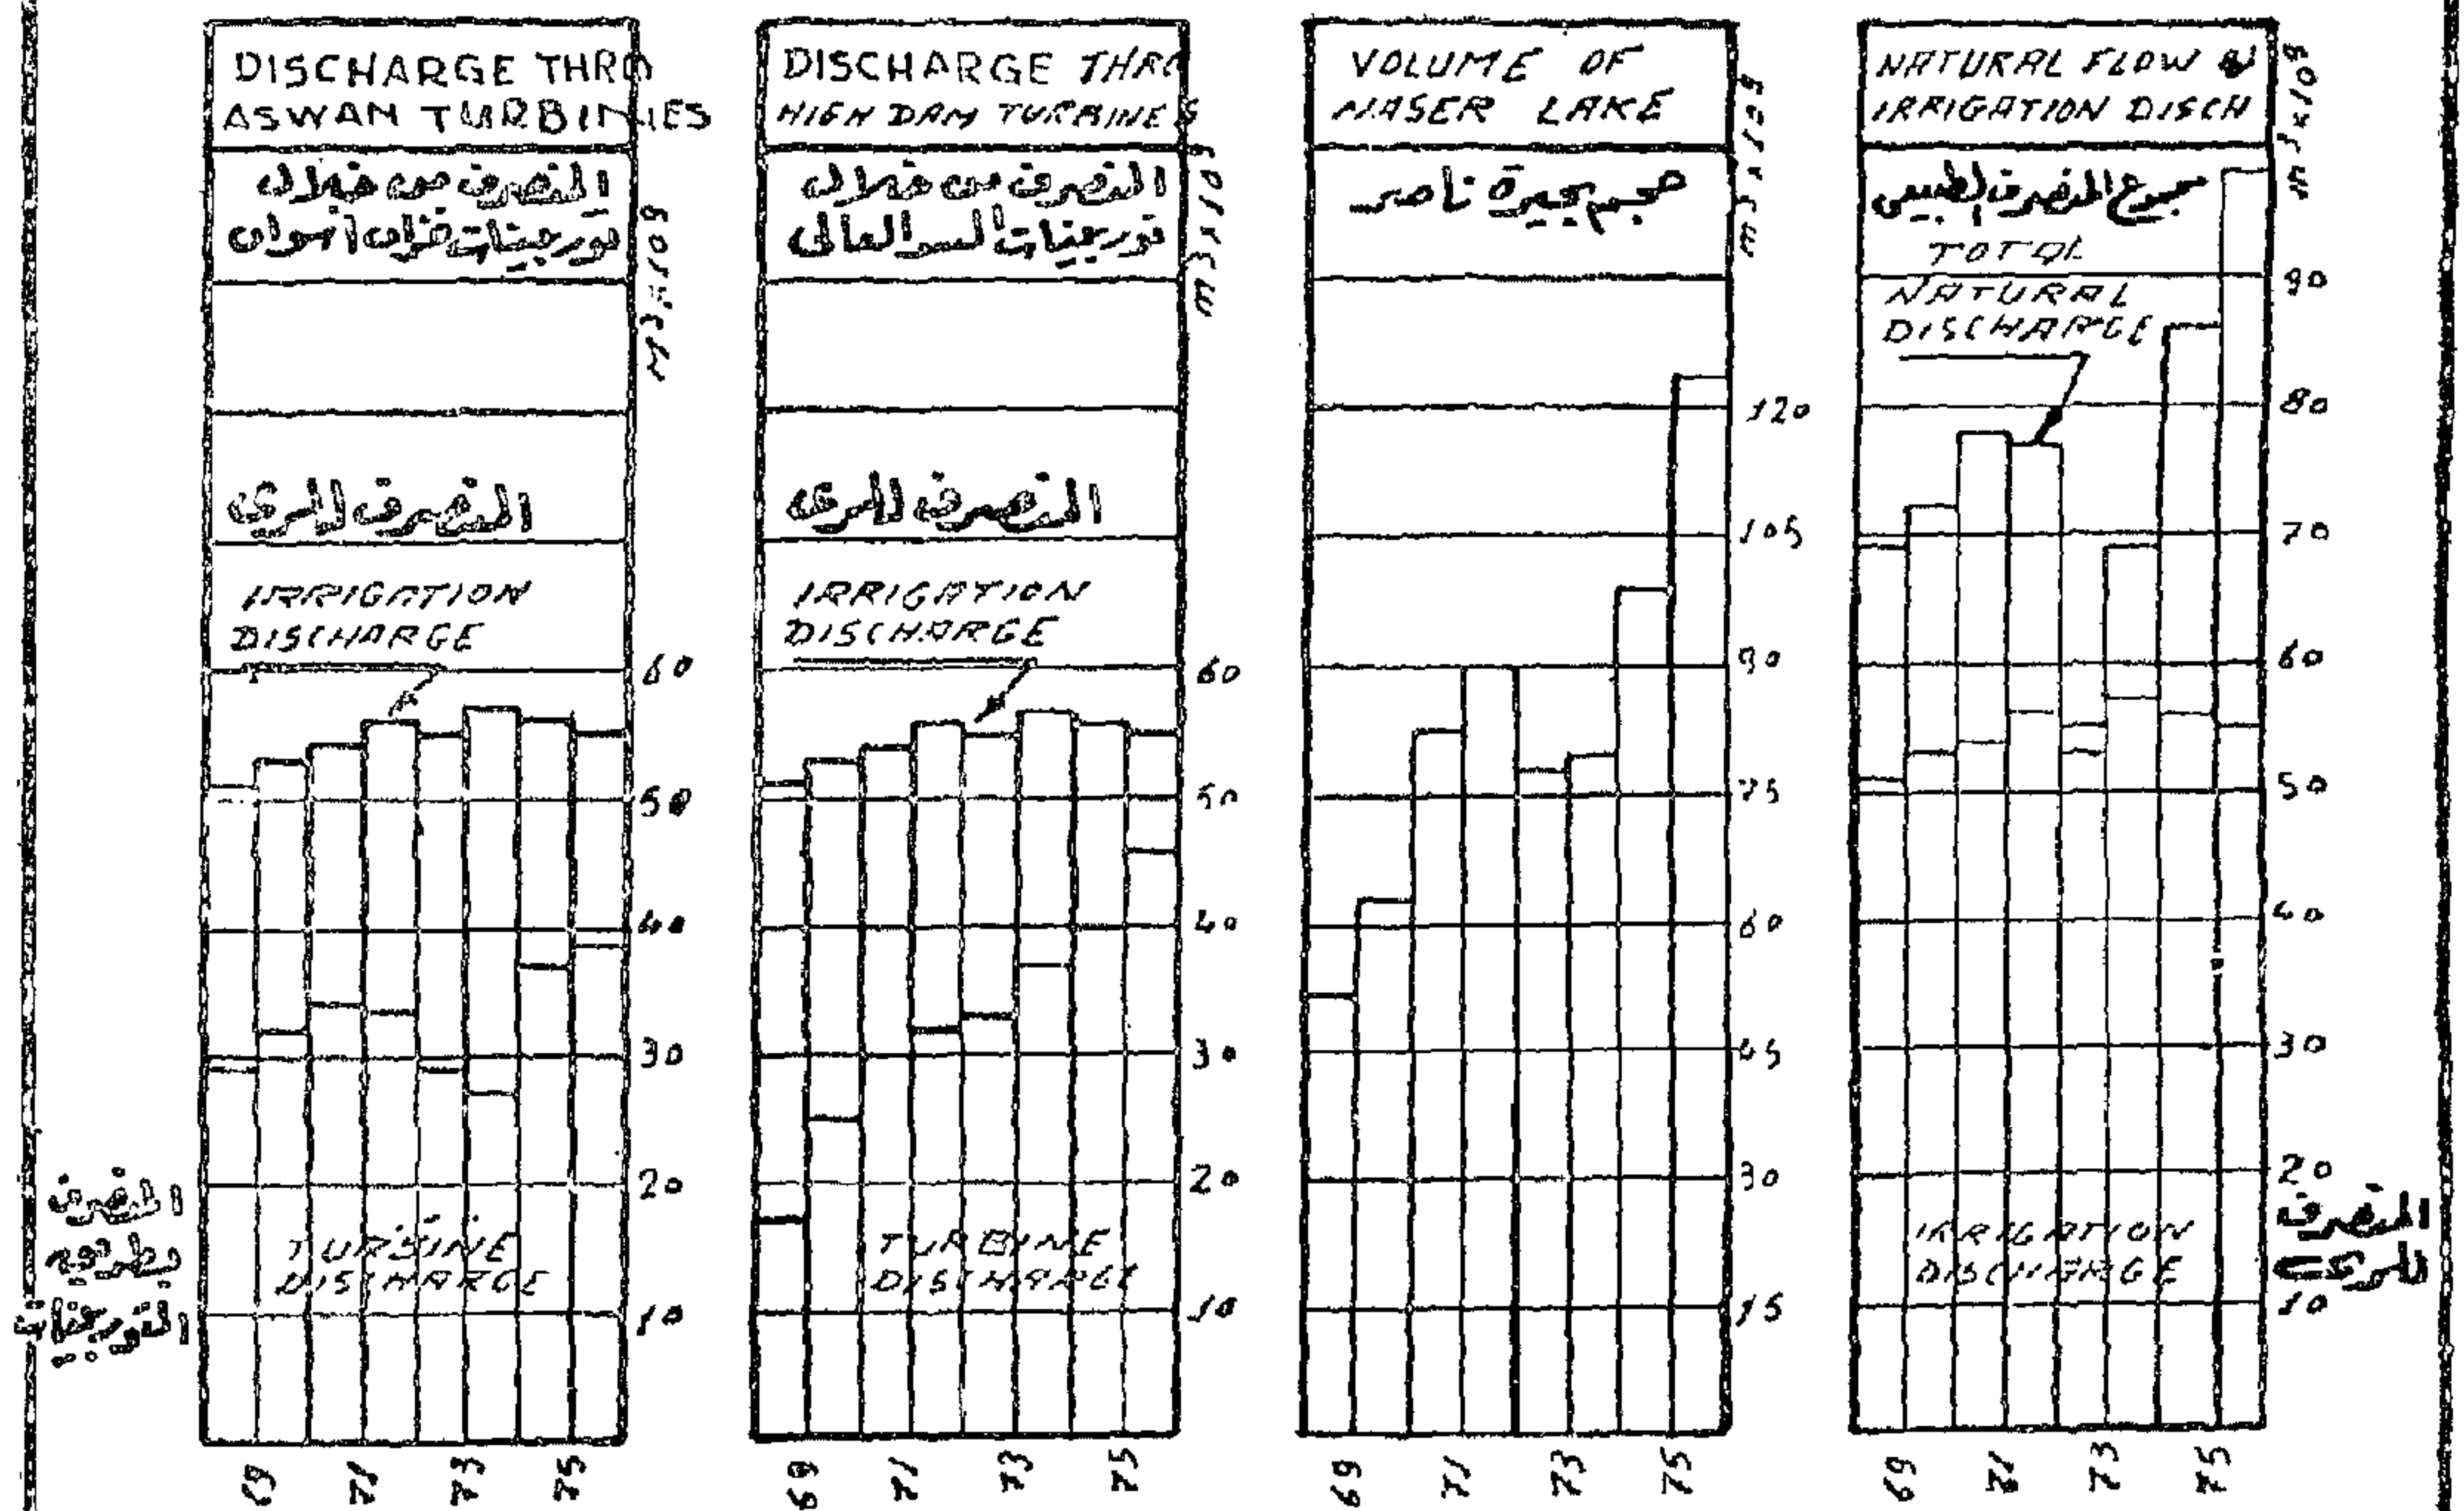 DISCHARGE THRO
ASWAN TURBINES
المنصرف من خلال
توربينات خزان اسوان
M3x109
المنصرف للري
IRRIGATION
DISCHARGE
60
50
40
30
20
10
TURBINE
DISCHARGE
المنصرف
بطريق
التوربينات
69
71
73
75
DISCHARGE THRO
HIGH DAM TURBINES
المنصرف من خلال
توربينات السد العالى
m3x109
المنصرف للرى
IRRIGATION
DISCHARGE
60
50
40
30
20
10
TURBINE
DISCHARGE
69
71
73
75
VOLUME OF
NASER LAKE
حجم بحيرة ناصر
m3x109
120
105
90
75
60
45
30
15
69
71
73
75
NATURAL FLOW &
IRRIGATION DISCH
مجموع المنصرف الطبيعى
m3x109
TOTAL
NATURAL
DISCHARGE
90
80
70
60
50
40
30
20
10
IRRIGATION
DISCHARGE
المنصرف
للرى
69
71
73
75